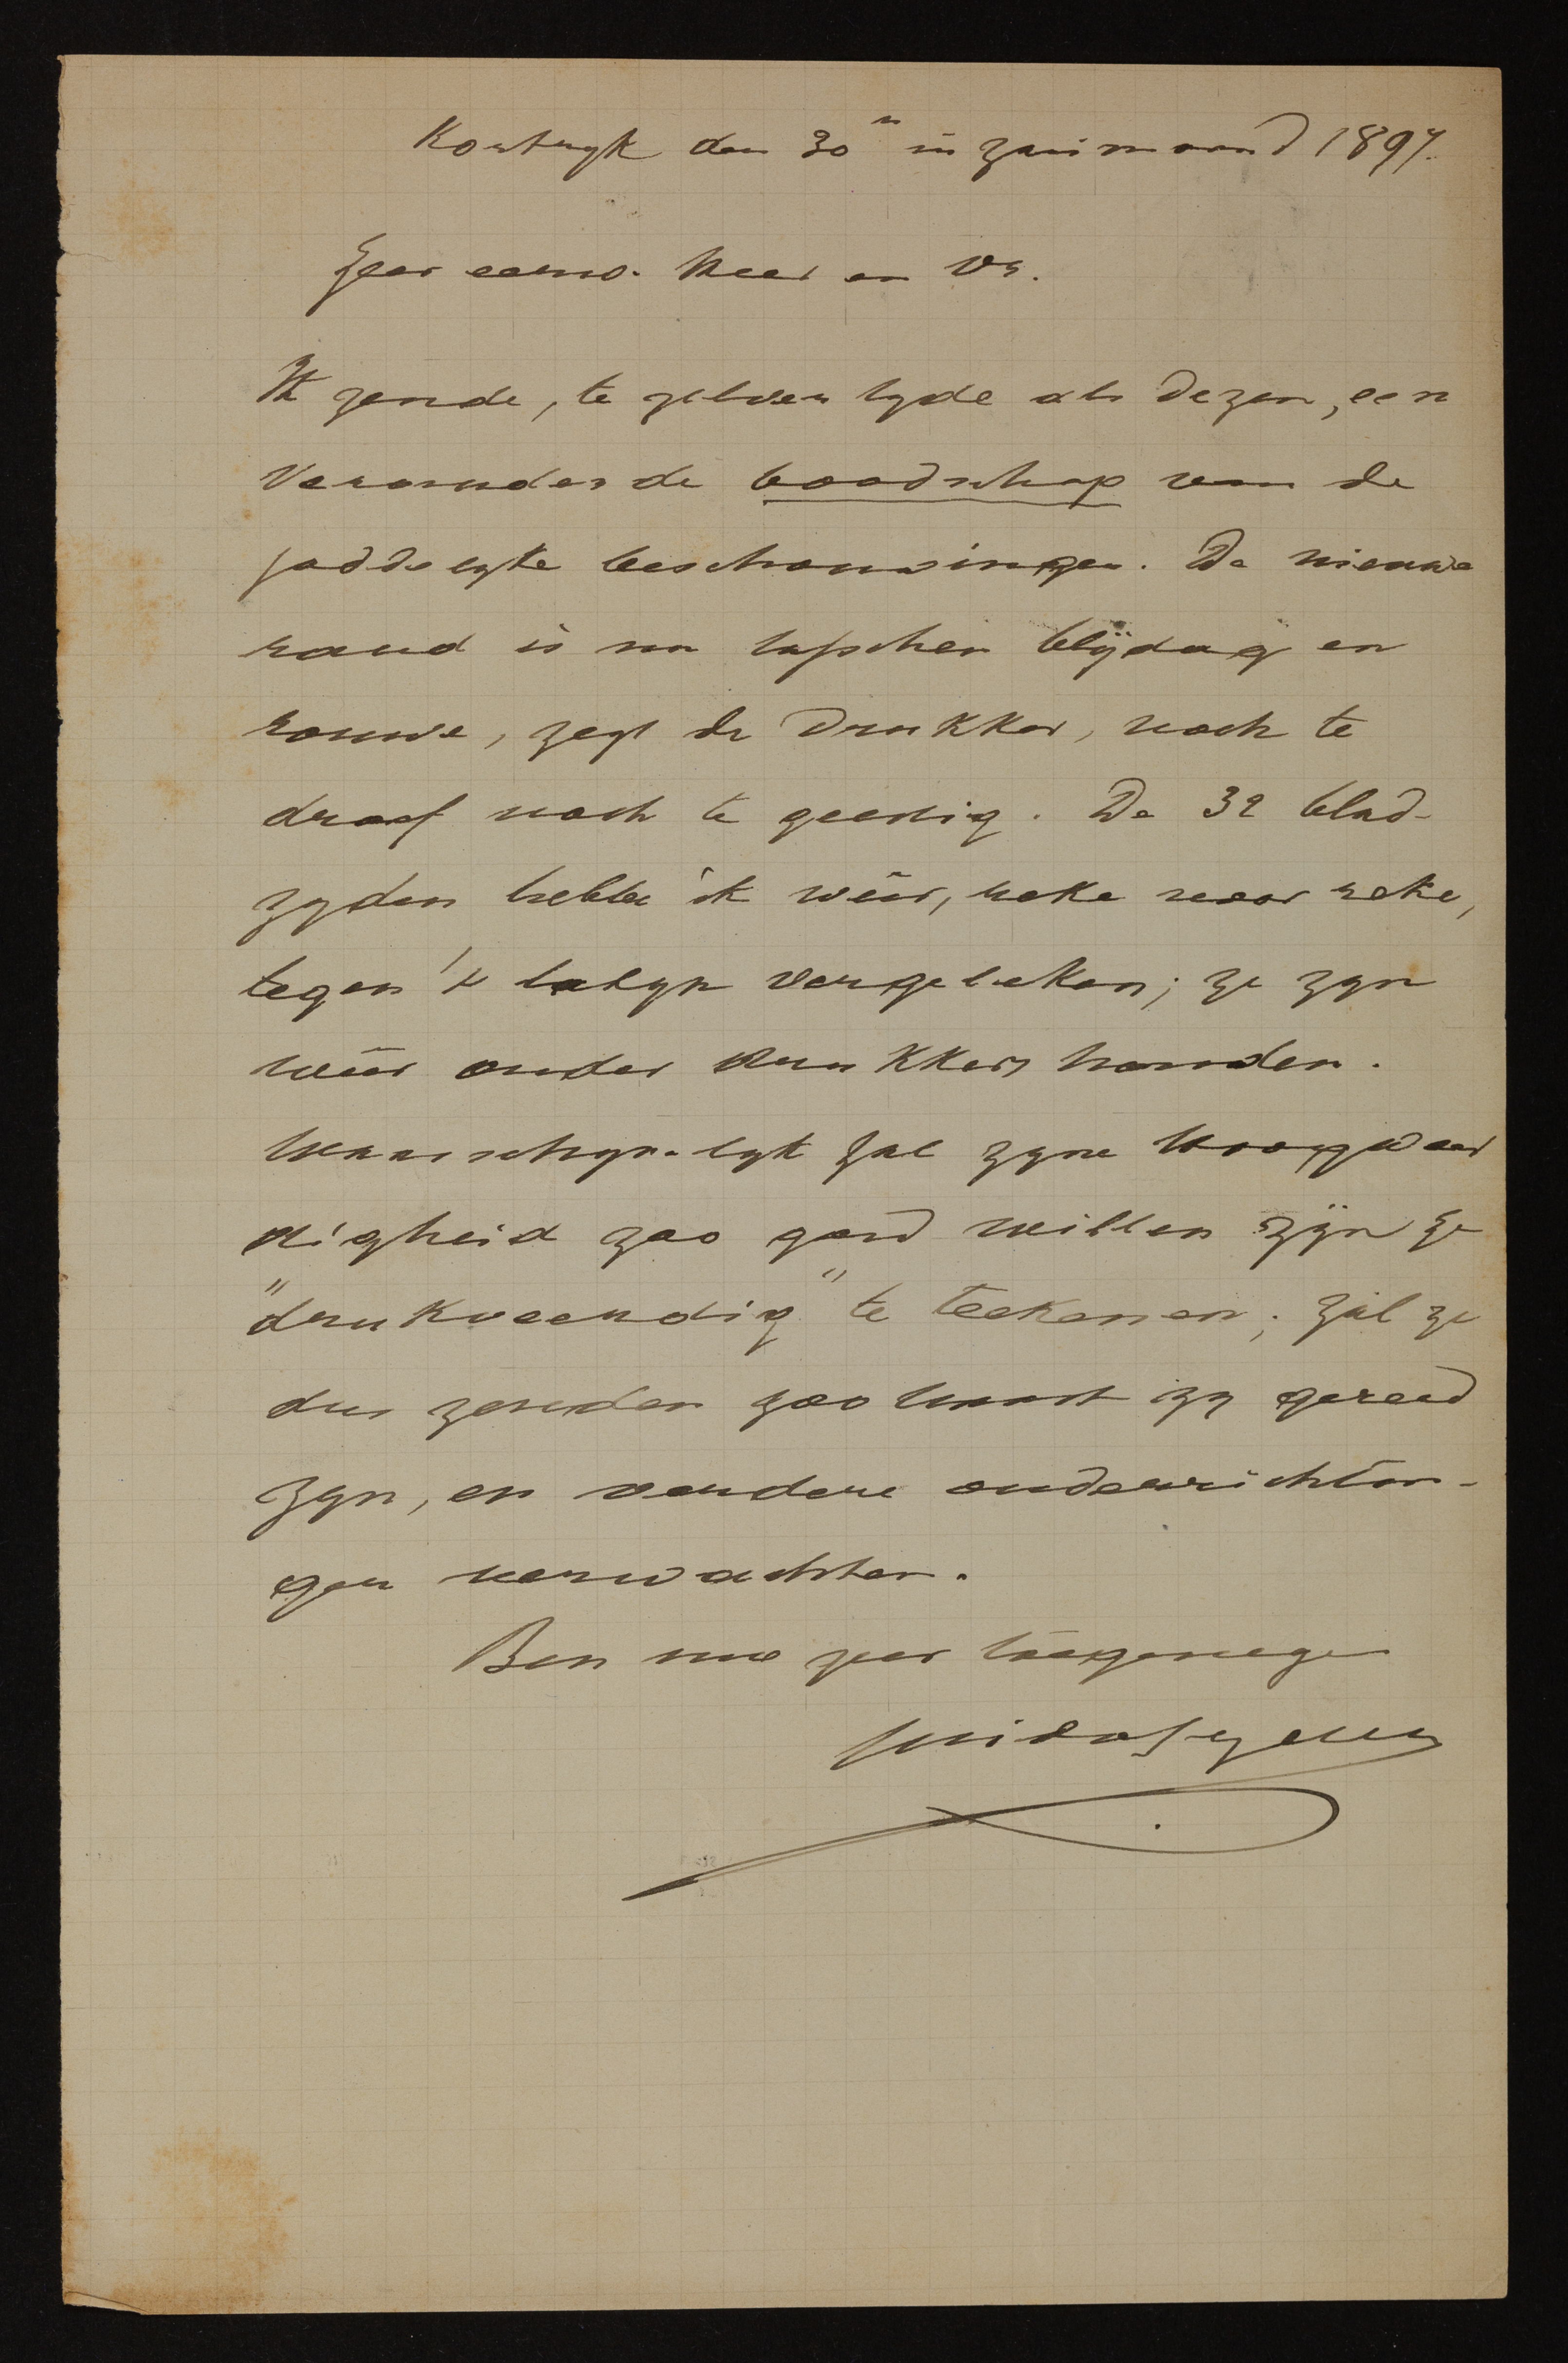 Kortryk den 30n in zaaimaand 1897.
Zeer eerw. Heer en Vr.
Ik zende, te zelver tyde als dezen, een
veranderde boodschap van de
goddelyke beschouwingen. De nieuwe
rand is nu tusschen blijdag en
rouwe, zegt de drukker, noch te
droef noch te geestig. De 32 blad-
zyden hebbe ik wêer, reke voor reke,
tegen 't latyn vergeleken; ze zyn
wêer onder drukkers handen.
Waarschynelyk zal zyne Hoogweer
digheid zoo goed willen zijn ze
"drukveerdig" te teekenen; zal ze
dus zenden zoo haast zy gereed
zyn, en verdere onderrichtin-
gen verwachten.
Ben uw zeer toegenegen
Guido Gezelle